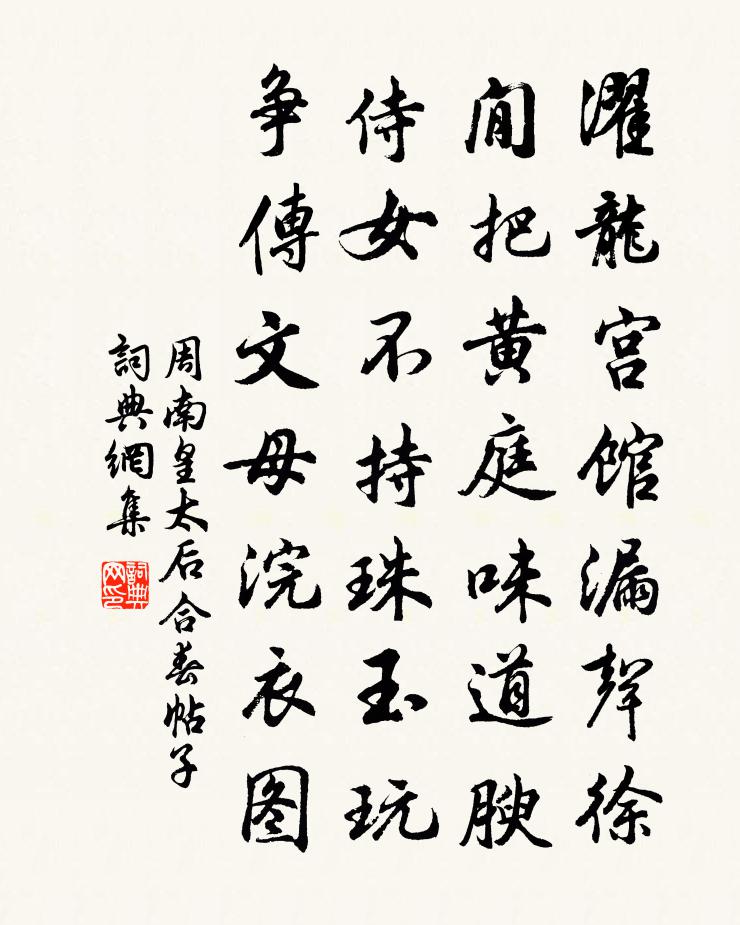 濯龍宫館漏聲徐
閒把黄庭味道腴
侍女不持珠玉玩
争傳文母浣衣图
周南皇太后合春帖子
詞典網集
詞典网印